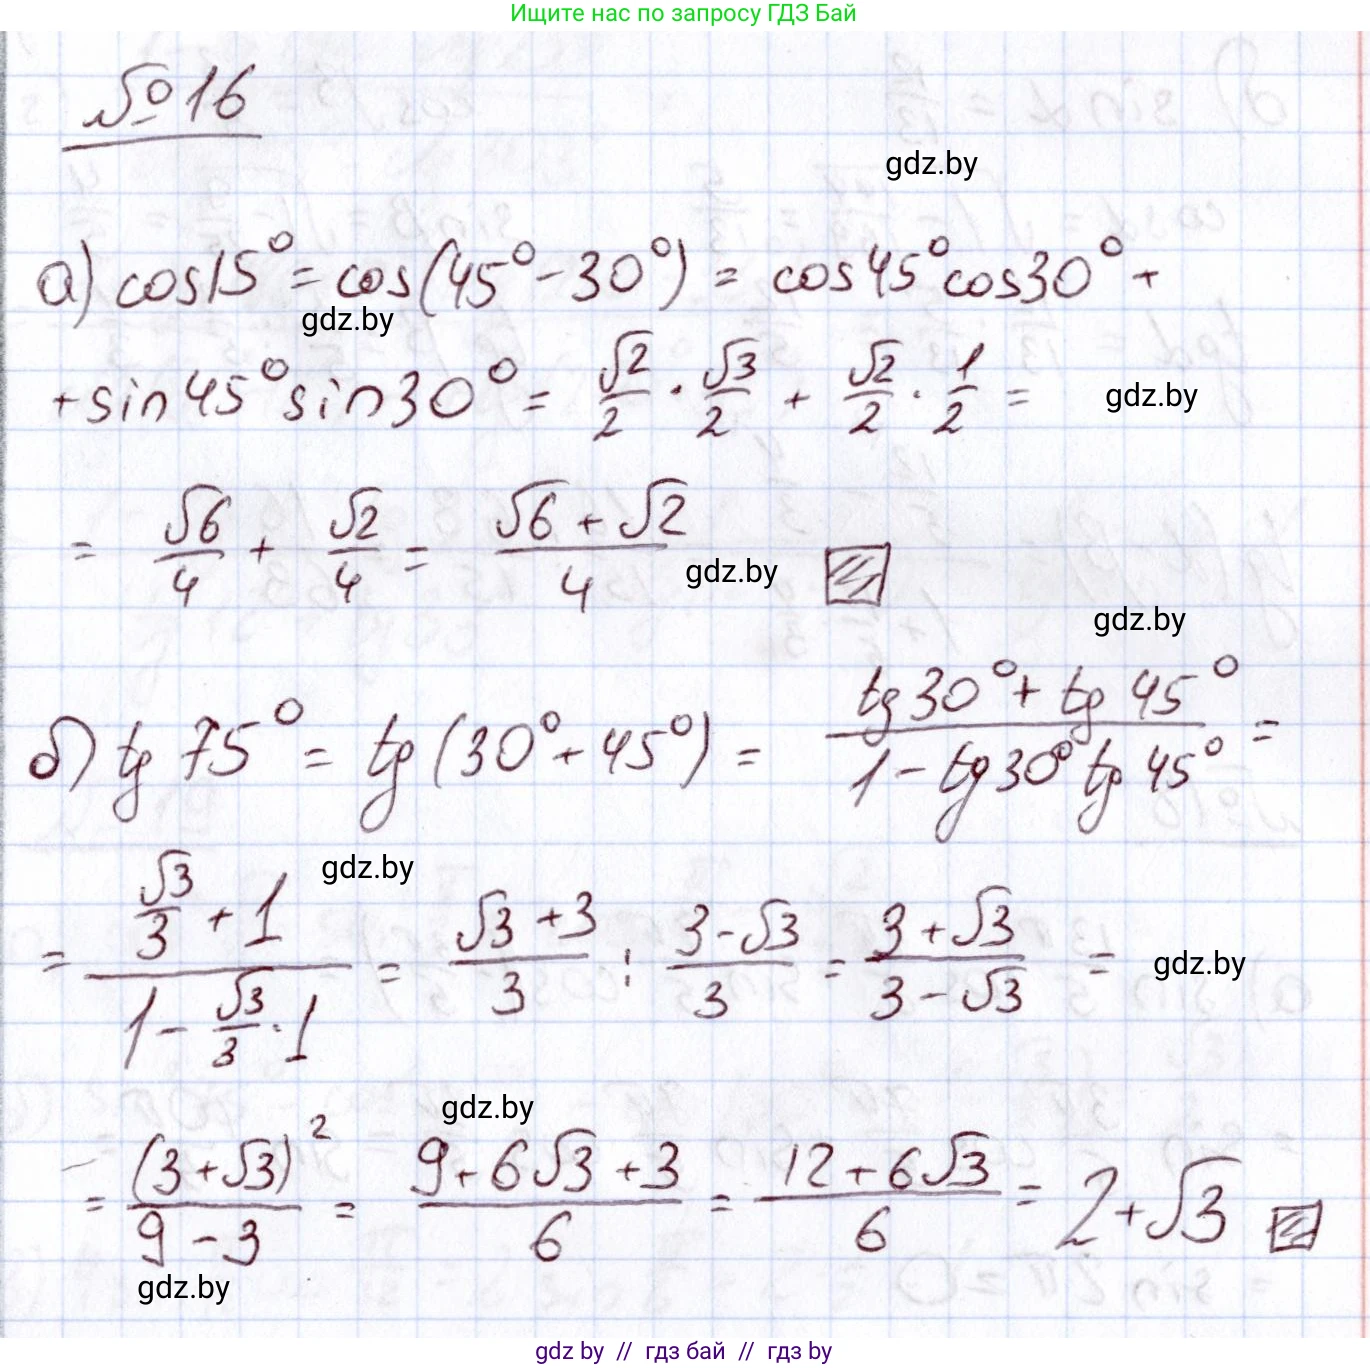 Ищите нас по запросу ГДЗ Бай
№16
gdz.by
а) cos15° = cos(45° - 30°) = cos45°cos30° +
gdz.by
+ sin45°sin30° = √2/2 · √3/2 + √2/2 · 1/2 =
gdz.by
= √6/4 + √2/4 = (√6 + √2)/4
gdz.by
gdz.by
б) tg 75° = tg (30° + 45°) = (tg30° + tg 45°)/(1 - tg30° tg 45°) =
gdz.by
= (√3/3 + 1)/(1 - √3/3 · 1) = (√3 + 3)/3 : (3 - √3)/3 = (3 + √3)/(3 - √3) =
gdz.by
gdz.by
= (3 + √3)²/(9 - 3) = (9 + 6√3 + 3)/6 = (12 + 6√3)/6 = 2 + √3
gdz.by
gdz by // гдз бай // гдз by